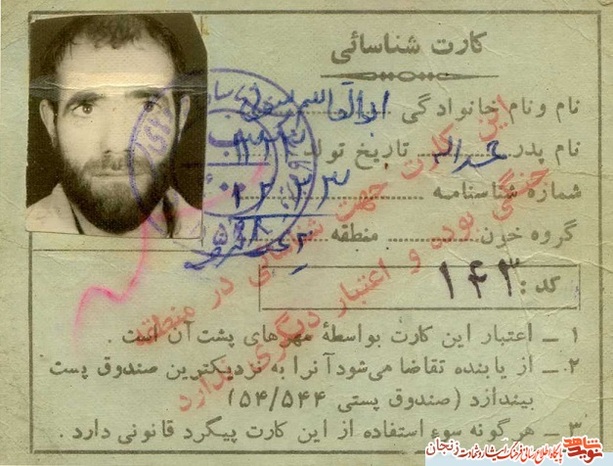 کارت شناسائی
نام و نام خانوادگی ابوالقاسم
نام پدر تاریخ تولد
شماره شناسنامه
گروه خون منطقه
کد: ۱۴۳
۱ - اعتبار این کارت بواسطهٔ مهرهای پشت آن است .
۲ - از یابنده تقاضا می‌شود آنرا به نزدیکترین صندوق پست
بیندازد (صندوق پستی ۵۴/۵۴۴)
۳ - هرگونه سوء استفاده از این کارت پیگرد قانونی دارد .
این کارت جهت شناسائی در منطقه
جنگی بوده و اعتبار دیگری ندارد
نوید شاهد
پایگاه اطلاع رسانی فرهنگ ایثار و شهادت زنجان